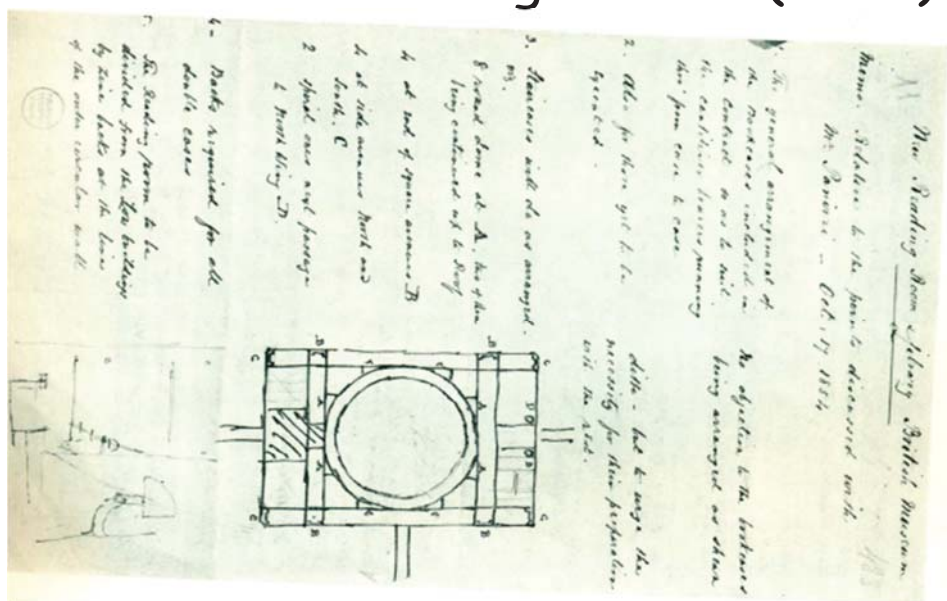 New Reading Room Library British Museum
Memo. Relative to the points discussed with
Mr Panizzi - Oct. 17 1854
1. The general arrangement of
the bookcases included in
the contract so as to suit
the continuous
this from case to case
No objection to the bookcases
being arranged as shewn
2. Also for there yet to be
executed.
ditto - but to urge the
necessity for their preparation
with the rest.
3. Staircases will be as arranged.
viz.
8 round dome at A, two of them
being continued up to Roof
4 at end of square avenues B
4 at side avenues North and
South, C
2 Spiral ones and passage
to North Wing D.
4. Backs required for all
double cases
5. The Reading Room to be
divided from the Low buildings
by at the line
of the outer circular wall
C
B
B
C
D
A
A
D
A
A
C
B
B
C